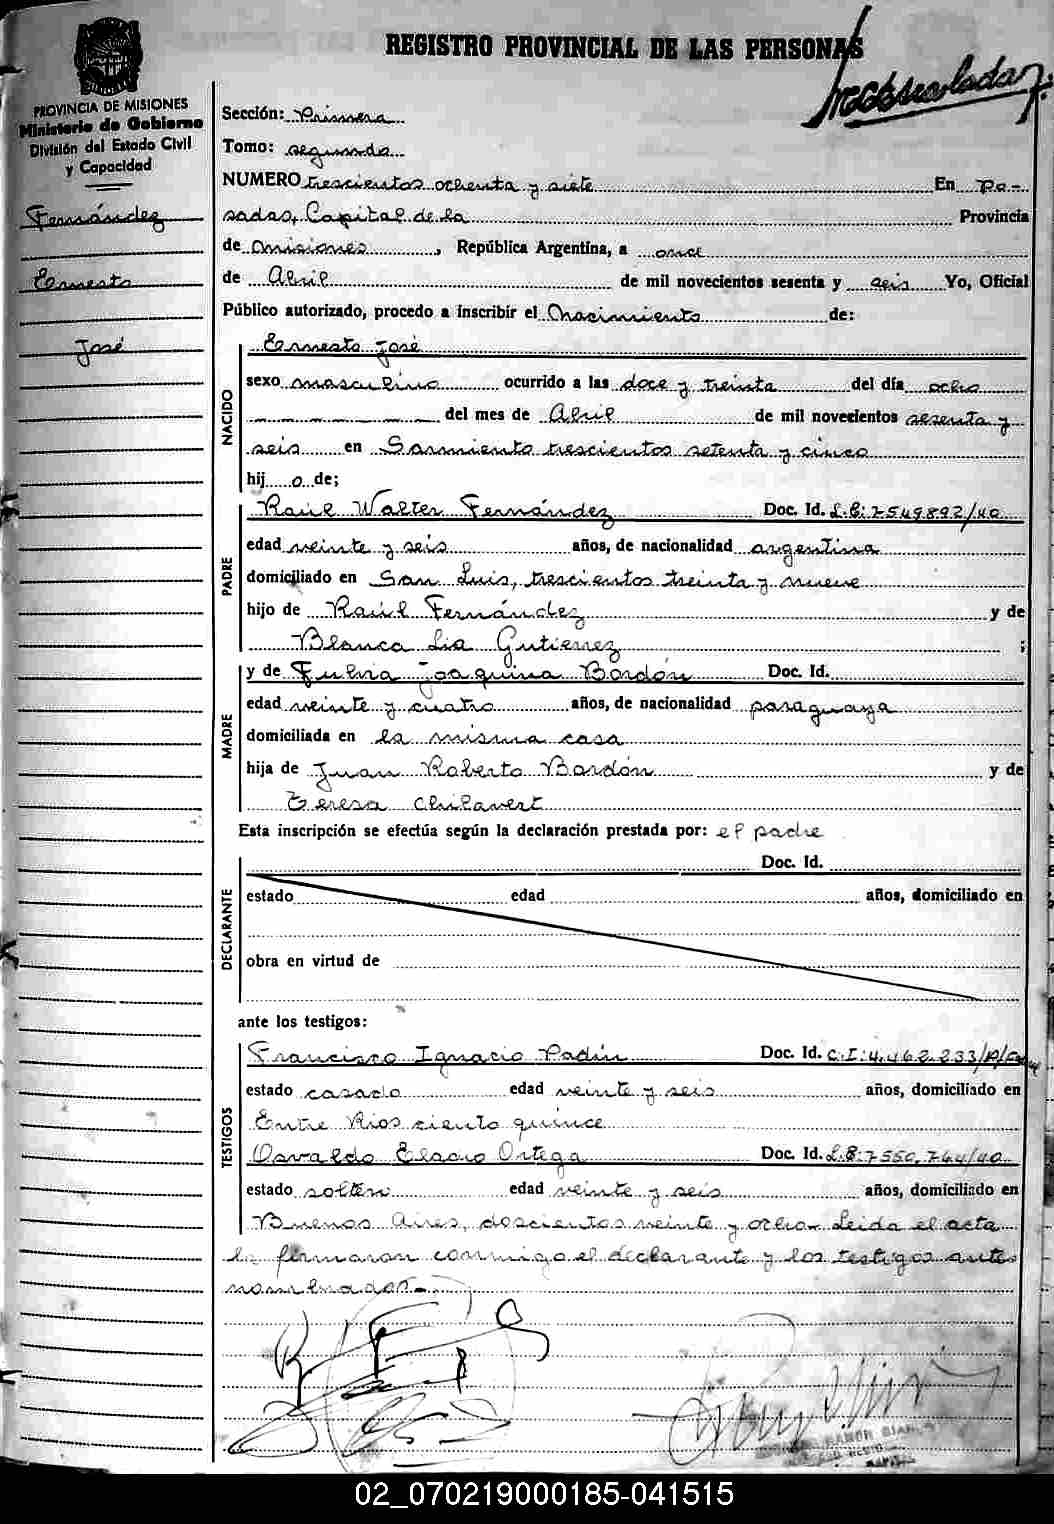 REGISTRO PROVINCIAL DE LAS PERSONAS
PROVINCIA DE MISIONES
Ministerio de Gobierno
División del Estado Civil
y Capacidad
Fernández
Ernesto
José
Sección: Primera
Tomo: segundo
NUMERO trescientos ochenta y siete En Po-
sadas, Capital de la Provincia
de Misiones, República Argentina, a once
de Abril de mil novecientos sesenta y seis Yo, Oficial
Público autorizado, procedo a inscribir el Nacimiento de:
NACIDO
Ernesto José
sexo masculino ocurrido a las doce y treinta del día ocho
del mes de Abril de mil novecientos sesenta y
seis en Sarmiento trescientos setenta y cinco
hij o de;
PADRE
Raúl Walter Fernández Doc. Id. L.E: 7549892/40
edad veinte y seis años, de nacionalidad argentina
domiciliado en San Luis, trescientos treinta y nueve
hijo de Raúl Fernández y de
Blanca Lia Gutierrez ;
MADRE
y de Fulvia Joaquina Bordón Doc. Id.
edad veinte y cuatro años, de nacionalidad paraguaya
domiciliada en la misma casa
hija de Juan Roberto Bordón y de
Teresa Chilavert
Esta inscripción se efectúa según la declaración prestada por: el padre
DECLARANTE
Doc. Id.
estado edad años, domiciliado en
obra en virtud de
ante los testigos:
TESTIGOS
Francisco Ignacio Padin Doc. Id. C.I: 4.462.233/P/
estado casado edad veinte y seis años, domiciliado en
Entre Rios ciento quince
Osvaldo Eladio Ortega Doc. Id. L.E: 7550.764/40
estado soltero edad veinte y seis años, domiciliado en
Buenos Aires, doscientos veinte y ocho- Leida el acta
la firmaron conmigo el declarante y los testigos antes
nombrados.-
02_070219000185-041515